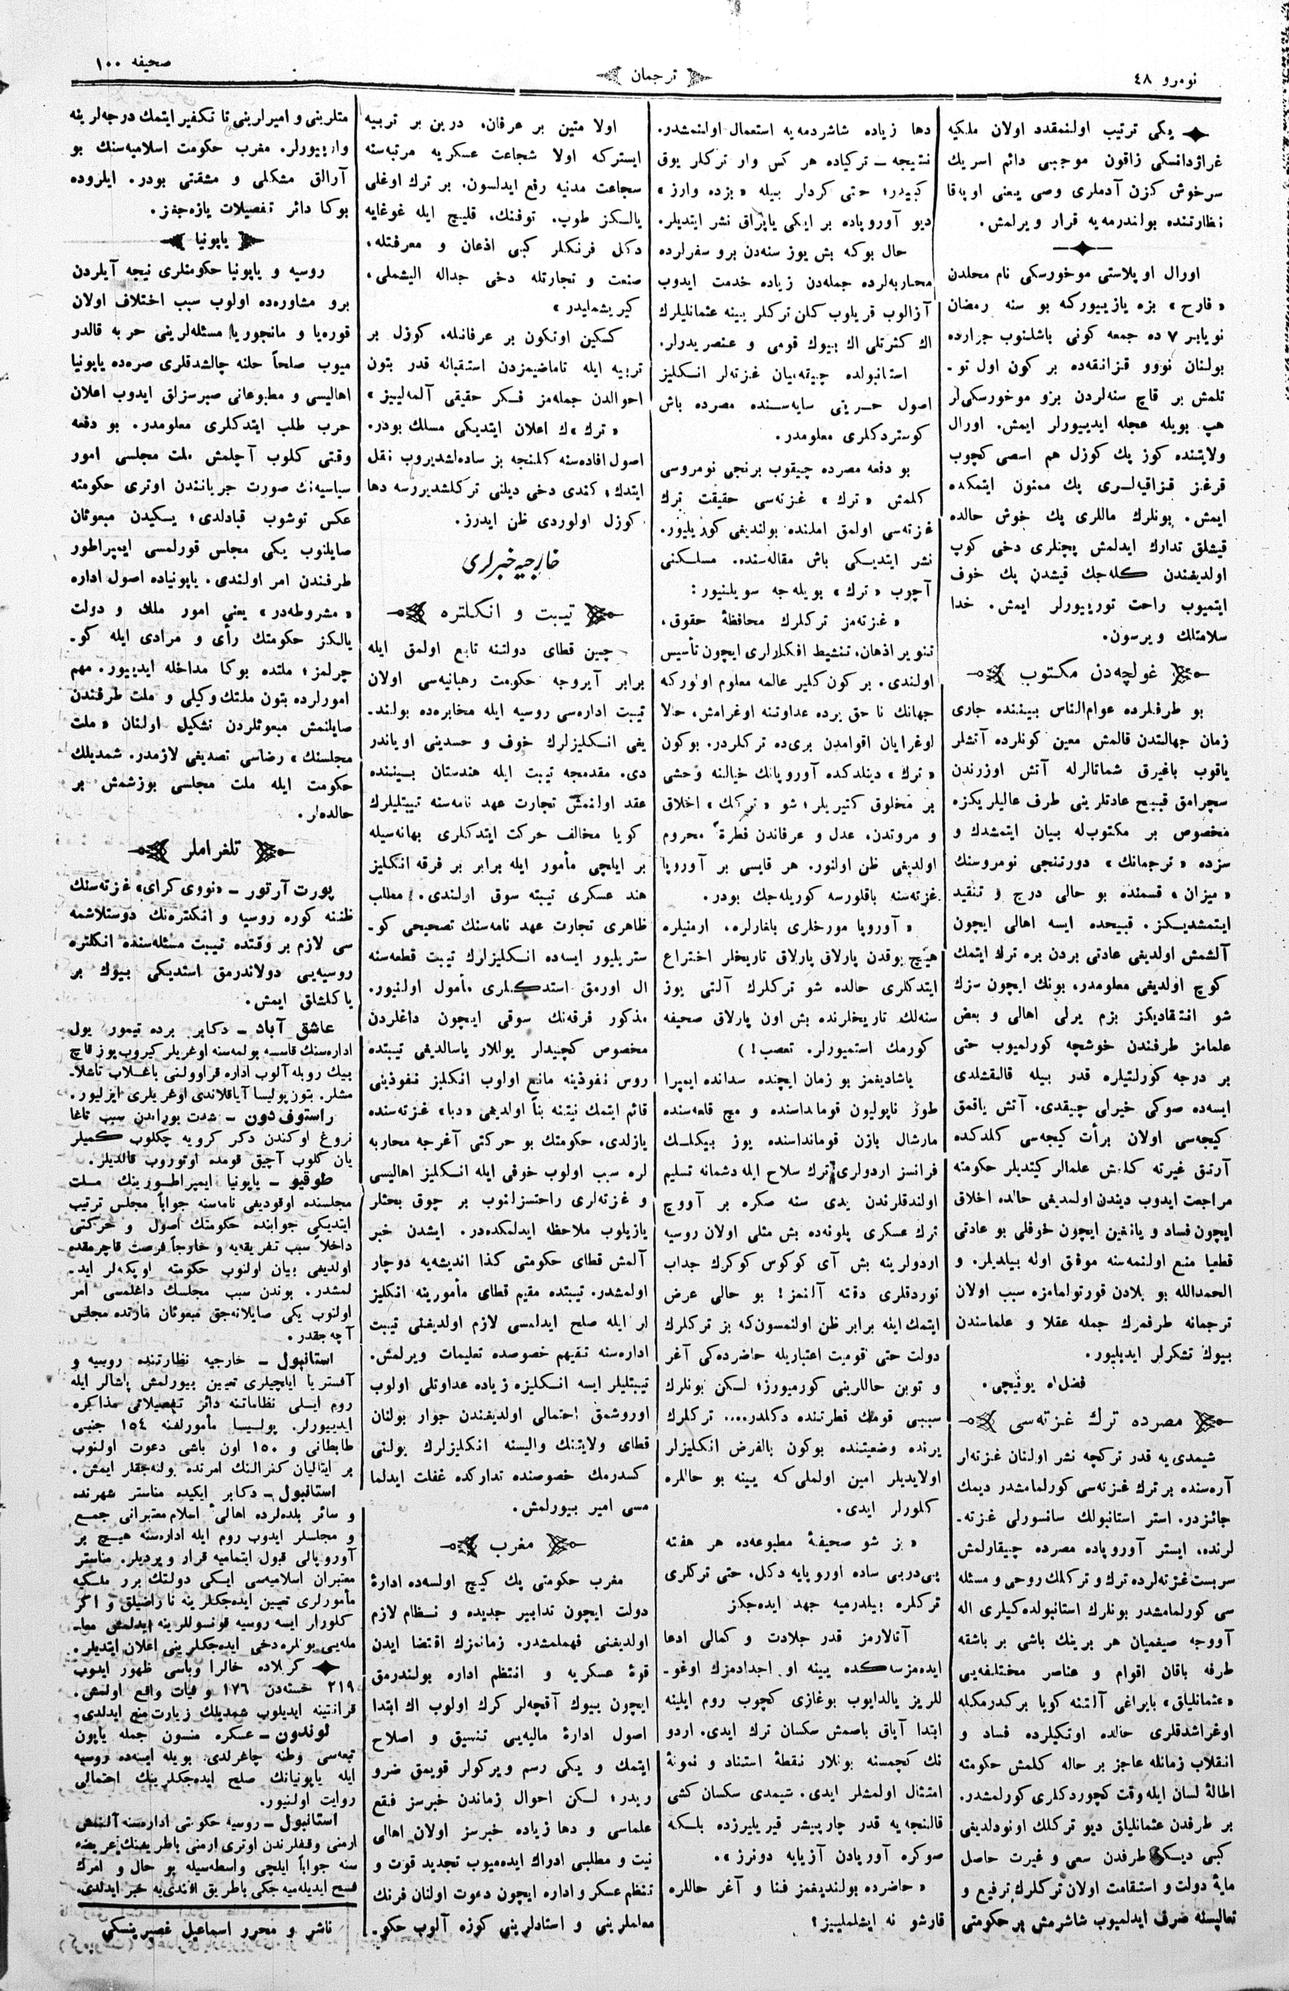 نومرو ٤٨
ترجمان
صحيفه ١٠٠
يكى ترتيب اولنمقدد اولان ملكيه
غراژدانسكى زاقون موجبى دائم اسريك
سرخوش كزن آدملرى وصى يعنى اوپه‌قا
نظارتنده بولندرمه‌يه قرار ويرلمش.
اورال اوپلاستى موخورسكى نام محلدن
«فارح» بزه يازييوركه بو سنه رمضان
نويابر ٧ ده جمعه كونى باشلنوب جوارده
بولنان نووو قزانقه‌ده بر كون اول تو-
تلمش بر قاچ سنه‌لردن برو موخورسكى‌لر
هپ بويله عجله ايدييورلر ايمش. اورال
ولايتنده كوز پك كوزل هم اسصى كچوب
قرغز قزاقيه‌لرى پك ممنون ايتمكده
ايمش. بونلرك ماللرى پك خوش حالده
قيشلق تدارك ايدلمش پچنلرى دخى كوپ
اولديغندن كله‌جك قيشدن پك خوف
ايتميوب راحت تورييورلر ايمش. خدا
سلامتلك ويرسون.
غولجه‌دن مكتوب
بو طرفلرده عوام‌الناس بيننده جارى
زمان جهالتدن قالمش معين كونلرده آتشلر
ياقوب باغيرق شماتالرله آتش اوزرندن
سچرامق قبيح عادتلرينى طرف عاليلريكزه
مخصوص بر مكتوب‌له بيان ايتمشدك و
سزده «ترجمانك» دورتنجى نومروسنك
«ميزان» قسمنده بو حالى درج و تنقيد
ايتمشديكز. قبيحده ايسه اهالى ايچون
آلشمش اولديغى عادتى بردن بره ترك ايتمك
كوچ اولديغى معلومدر، بونك ايچون سزك
شو انتقاديكز بزم يرلى اهالى و بعض
علمامز طرفندن خوشچه كورلميوب حتى
بر درجه كورلتيلره قدر بيله قالقشلدى
ايسه‌ده صوكى خيرلى چيقدى. آتش ياقمق
كيجه‌سى اولان برأت كيجه‌سى كلدكده
آرتق غيرته كلمش علمالر كيتديلر حكومته
مراجعت ايدوب ديندن اولمديغى حالده اخلاق
ايچون فساد و يانغين ايچون خوفلى بو عادتى
قطعيا منع اولنمه‌سنه موفق اوله بيلديلر. و
الحمدالله بو بلادن قورتولمامزه سبب اولان
ترجمانه طرفمزك جمله عقلا و علماسندن
بيوك تشكرلر ايديليور.
فضل‌اه يوقيچى.
مصرده ترك غزته‌سى
شيمدى‌يه قدر تركچه نشر اولنان غزته‌لر
آره‌سنده بر ترك غزته‌سى كورلمامشدر ديمك
جائزدر. استر استانبولك سانسورلى غزته-
لرنده، ايستر آوروپاده مصرده چيقارلمش
سربست غزته‌لرده ترك و تركلك روحى و مسئله
سى كورلمامشدر بونلرك استانبولده‌كيلرى اله
آووجه صيغميان هر برينك باشى بر باشقه
طرفه باقان اقوام و عناصر مختلفه‌يى
«عثمانليلق» بايراغى آلتنه كويا بركدرمكله
اوغراشدقلرى حالده اوتكيلرده فساد و
انقلاب زمانله عاجز بر حاله كلمش حكومته
اطالهٔ لسان ايله وقت كچوردكلرى كورلمشدر.
بر طرفدن عثمانليلق ديو تركلك اونودلديغى
كبى ديكر طرفدن سعى و غيرت حاصل
مايهٔ دولت و استقامت اولان تركلرك ترفيع و
تعاليسنه صرف ايدلميوب شاشرمش بر حكومتى
دها زياده شاشردمه‌يه استعمال اولنمشدر.
نتيجه — تركياده هر كس وار تركلر يوق
كبيدر؛ حتى كردلر بيله «بزده وارز»
ديو آوروپاده بر ايكى ياپراق نشر ايتديلر.
حال بوكه بش يوز سنه‌دن برو سفرلرده
محاربه‌لرده جمله‌دن زياده خدمت ايدوب
آزالوب قريلوب كلن تركلر يينه عثمانليلرك
اك كثرتلى اك بيوك قومى و عنصريدرلر.
استانبولده چيقمه‌يان غزته‌لر انكليز
اصول حريتى سايه‌سنده مصرده باش
كوستردكلرى معلومدر.
بو دفعه مصرده چيقوب برنجى نومروسى
كلمش «ترك» غزته‌سى حقيقت ترك
غزته‌سى اولمق املنده بولنديغى كوريليور.
نشر ايتديكى باش مقاله‌سنده، مسلكنى
آچوب «ترك» بويله‌جه سويلنيور:
«غزته‌مز تركلرك محافظهٔ حقوق،
تنوير اذهان، تنشيط افكارلرى ايچون تأسيس
اولندى. بر كون كلير عالمه معلوم اولوركه
جهانك نا حق يرده عداوتنه اوغرامش، حالا
اوغرايان اقوامدن برى‌ده تركلردر. بوكون
«ترك» دينلدكده آوروپانك خيالنه وحشى
بر مخلوق كتيريلر؛ شو «تركك» اخلاق
و مروتدن، عدل و عرفاندن فطرةً محروم
اولديغى ظن اولنور. هر قايسى بر آوروپا
غزته‌سنه باقلورسه كوريله‌جك بودر.
«آوروپا مورخلرى بلغارلره، ارمنيلره
هيچ يوقدن پارلاق پارلاق تاريخلر اختراع
ايتدكلرى حالده شو تركلرك آلتى يوز
سنه‌لك تاريخلرنده بش اون پارلاق صحيفه
كورمك استميورلر. تعصب! )
ياشاديغمز بو زمان ايچنده سدانده ايمپرا
طور ناپوليون قومانداسنده و مچ قلعه‌سنده
مارشال بازن قومانداسنده يوز بيكلك
فرانسز اردولرى ترك سلاح ايله دشمانه تسليم
اولندقلرندن يدى سنه صكره بر آووچ
ترك عسكرى پلونه‌ده بش مثلى اولان روسيه
اردولرينه بش آى كوكوس كوكرك جداب
توردقلرى دقته آلنمز! بو حالى عرض
ايتمك اينه برابر ظن اولنمسون‌كه بز تركلرك
دولت حتى قوميت اعتباريله حاضرده‌كى آغر
و توبن حاللرينى كورميورز؛ لكن بونلرك
سببى قومك فطرتنده دكلدر.... تركلرك
يرنده وضعيتنده بوكون بالفرض انكليزلر
اولايديلر امين اولملى‌كه يينه بو حاللره
كلمورلر ايدى.
«بز شو صحيفهٔ مطبوعه‌ده هر هفته
پى‌درپى ساده اوروپايه دكل، حتى تركلرى
تركلره بيلدرميه جهد ايده‌جكز
آتالارمز قدر جلادت و كمالى ادعا
ايده‌مزسه‌كده يينه او اجدادمزك اوغو-
للريز يالدايوب بوغازى كچوب روم ايلينه
ابتدا آياق باصمش سكسان ترك ايدى. اردو
نك كچمسنه بونلار نقطهٔ استناد و نمونهٔ
امتثال اولمشلر ايدى. شيمدى سكسان كشى
قالنجه‌يه قدر چارپيشر قيريليرزده بلكه
صوكره آوريادن آزيايه دونرز».
«حاضرده بولنديغمز فنا و آغر حاللره
قارشو نه ايشلملييز؟
اولا متين بر عرفان، درين بر تربيه
ايستركه اولا شجاعت عسكريه مرتبه‌سنه
سجاعت مدنيه رفع ايدلسون. بر ترك اوغلى
يالكز طوپ، توفنك، قليچ ايله غوغايه
دكل فرنكلر كبى اذعان و معرفتله،
صنعت و تجارتله دخى جداله اليشملى،
كيريشملىدر»
كسكين اوتكون بر عرفانله، كوزل بر
تربيه ايله تاماضيمزدن استقبالنه قدر بتون
احوالدن جمله‌مز فكر حقيقى آلمه‌لييز»
«ترك»ك اعلان ايتديكى مسلك بودر.
اصول افاده‌سنه كلمنجه بز ساده‌لشديروب نقل
ايتدك؛ كندى دخى ديلنى تركلشديررسه دها
كوزل اولوردى ظن ايدرز.
خارجيه خبرلرى
تيبت و انكلتره
چين قطاى دولتنه تابع اولمق ايله
برابر آيروجه حكومت رهبانيه‌سى اولان
تيبت اداره‌سى روسيه ايله مخابره‌ده بولند-
يغى انكليزلرك خوف و حسدينى اوياندر
دى. مقدمجه تيبت ايله هندستان بيننده
عقد اولنمش تجارت عهد نامه‌سنه تيبتليلرك
كويا مخالف حركت ايتدكلرى بهانه‌سيله
بر ايلچى مأمور ايله برابر بر فرقه انكليز
هند عسكرى تيبته سوق اولندى. مطلب
ظاهرى تجارت عهد نامه‌سنك تصحيحى كو-
ستريليور ايسه‌ده انكليزلرك تيبت قطعه‌سنه
ال اورمق استدكلرى مأمول اولنيور.
مذكور فرقه‌نك سوقى ايچون داغلردن
مخصوص كچيدلر يوللار ياسالديغى تيبتده
روس نفوذينه مانع اولوب انكليز نفوذينى
قائم ايتمك نيتنه بناً اولديغى «دبا» غزته‌سنده
يازلدى. حكومتك بو حركتى آغرجه محاربه
لره سبب اولوب خوفى ايله انكليز اهاليسى
و غزته‌لرى راحتسزلنوب بر چوق بحثلر
يازيلوب ملاحظه ايدلمكده‌در. ايشدن خبر
آلمش قطاى حكومتى كذا انديشه‌يه دوچار
اولمشدر. تيبتده مقيم قطاى مأمورينه انكليز
لر ايله صلح ايدلمسى لازم اولديغنى تيبت
اداره‌سنه تفهيم خصوصده تعليمات ويرلمش.
تيبتليلر ايسه انكليزه زياده عداوتلى اولوب
اوروشمق احتمالى اولديغندن جوار بولنان
قطاى ولايتنك واليسنه انكليزلرك يولنى
كسدرمك خصوصنده تداركده غفلت ايدلما
مسى امير بيورلمش.
مغرب
مغرب حكومتى پك كيچ اولسه‌ده ادارهٔ
دولت ايچون تدابير جديده و نظام لازم
اولديغنى فهملمشدر. زمانه‌نرك اقتضا ايدن
قوهٔ عسكريه و انتظم اداره بولندرمق
ايچون بيوك آقچه‌لر كرك اولوب اك ابتدا
اصول ادارهٔ ماليه‌يى تنسيق و اصلاح
ايتمك و يكى رسم ويركولر قويمق ضرو
ريدر؛ لكن احوال زماندن خبرسز فقع
علماسى و دها زياده خبرسز اولان اهالى
نيت و مطلبى ادراك ايده‌ميوب تجديد قوت و
تنظم عسكر و اداره ايچون دعوت اولنان فرنك
معلملرينى و استادلرينى كوزه آلوب حكو-
متلرينى و اميرلرينى تا تكفير ايتمك درجه‌لرينه
وارييورلر. مغرب حكومت اسلاميه‌سنك بو
آرالق مشكلى و مشقتى بودر. ايلروده
بوكا دائر تفصيلات يازه‌جغز.
ياپونيا
روسيه و ياپونيا حكومتلرى نيجه آيلردن
برو مشاوره‌ده اولوب سبب اختلاف اولان
قوره‌يا و مانجوريا مسئله‌لرينى حربه قالدر
ميوب صلحاً حلنه چالشدقلرى صره‌ده ياپونيا
اهاليسى و مطبوعاتى صبرسزلق ايدوب اعلان
حرب طلب ايتدكلرى معلومدر. بو دفعه
وقتى كلوب آچلمش ملت مجلسى امور
سياسيه‌نك صورت جرياننندن اوترى حكومته
عكس توشوب قپادلدى؛ يسكيدن مبعوثان
صايلنوب يكى مجلس قورلمسى ايمپراطور
طرفندن امر اولندى. ياپونياده اصول اداره
«مشروطه‌در» يعنى امور ملك و دولت
يالكز حكومتك رأى و مرادى ايله كو-
چرلمز؛ ملتده بوكا مداخله ايدييور. مهم
امورلرده بتون ملتك وكيلى و ملت طرفندن
صايلنمش مبعوثلردن تشكيل اولنان «ملت
مجلسنك» رضاسى تصديقى لازمدر. شمديلك
حكومت ايله ملت مجلسى بوزشمش بر
حالده‌لر.
تلغراملر
پورت آرتور — «نووى كراى» غزته‌سنك
ظننه كوره روسيه و انكلتره‌نك دوستلاشمه
سى لازم بر وقتده تيبت مسئله‌سنده انكلتره
روسيه‌يى دولاندرمق استديكى بيوك بر
ياكلشلق ايمش.
عاشق آباد — دكابر برده تيمور يول
اداره‌سنك قاسسه يولمه‌سنه اوغريلر كيروب يوز قاچ
بيك روبله آلوب اداره قراوولنى باغلاب تاشلا-
مشلر. بتون پوليسا آياقلاندى اوغريلرى ايزليور.
راستوف دون — شدت بوراندن سبب تاغا
نروغ اوكندن دكر كرويه چكلوب كميلر
يان كلوب آچيق قومده اوتوروب قالديلر.
طوقيو — ياپونيا ايمپراطورينك ملت
مجلسنده اوقوديغى نامه‌سنه جواباً مجلس ترتيب
ايتديكى جوابنده حكومتك اصول و حركتى
داخلاً سبب تفريقه‌يه و خارجاً فرصت قاچرمقده
اولديغى بيان اولنوب حكومته اوپكه‌لر ايد-
لمشدر. بوندن سبب مجلسك داغلمسى امر
اولنوب يكى صايلانه‌جق مبعوثان مارتده مجلس
آچه‌جقدر.
استانبول — خارجيه نظارتنده روسيه و
آفستريا ايلچيلرى تعيين بيورلمش پاشالر ايله
روم ايلى نظاماتنه دائر تفصيلاتى مذاكره
ايدييورلر. پوليسا مأمورلغنه ١٥٤ جنبى
طابطانى و ١٥٠ اون باشى دعوت اولنوب
بر ايتاليان كنرالنك امرنده بولنه‌جقلر ايمش.
استانبول — دكابر ايكيده مناستر شهرنده
و سائر بلده‌لرده اهالىٔ اسلام معتبرانى جمع
و مجلسلر ايدوب روم ايله اداره‌سنه هيچ بر
آوروپالى قبول ايتماميه قرار ويرديلر. مناستر
معتبران اسلاميه‌سى ايكى دولتك برر ملكيه
مأمورلرى تعيين ايده‌جكلرينه نا راضيلق و اكر
كلورلر ايسه روسيه قونسوللرينه ايدلمش معا-
مله‌يى بونلره دخى ايده‌جكلرينى اعلان ايتديلر.
كربلاده خالرا وباسى ظهور ايدوب
٢١٩ خسته‌دن ١٧٦ وفيات واقع اولمش.
قرانتينه ايديلوب شمديلك زيارت منع ايدلدى.
لوندون — عسكره منسون جمله ياپون
تبعه‌سى وطنه چاغرلدى. بويله ايسه‌ده روسيه
ايله ياپونيانك صلح ايده‌جكلرينك احتمالى
روايت اولنيور.
استانبول — روسيه حكومتى اداره‌سنه آلنمش
ارمنى وقفلرندن اوترى ارمنى باطريغينك عريضه
سنه جواباً ايلچى واسطه‌سيله بو حال و امرك
فسح ايديله‌ميه جكى باطريق افندى‌يه خبر ايدلدى.
ناشر و محرر اسماعيل غصپرينسكى